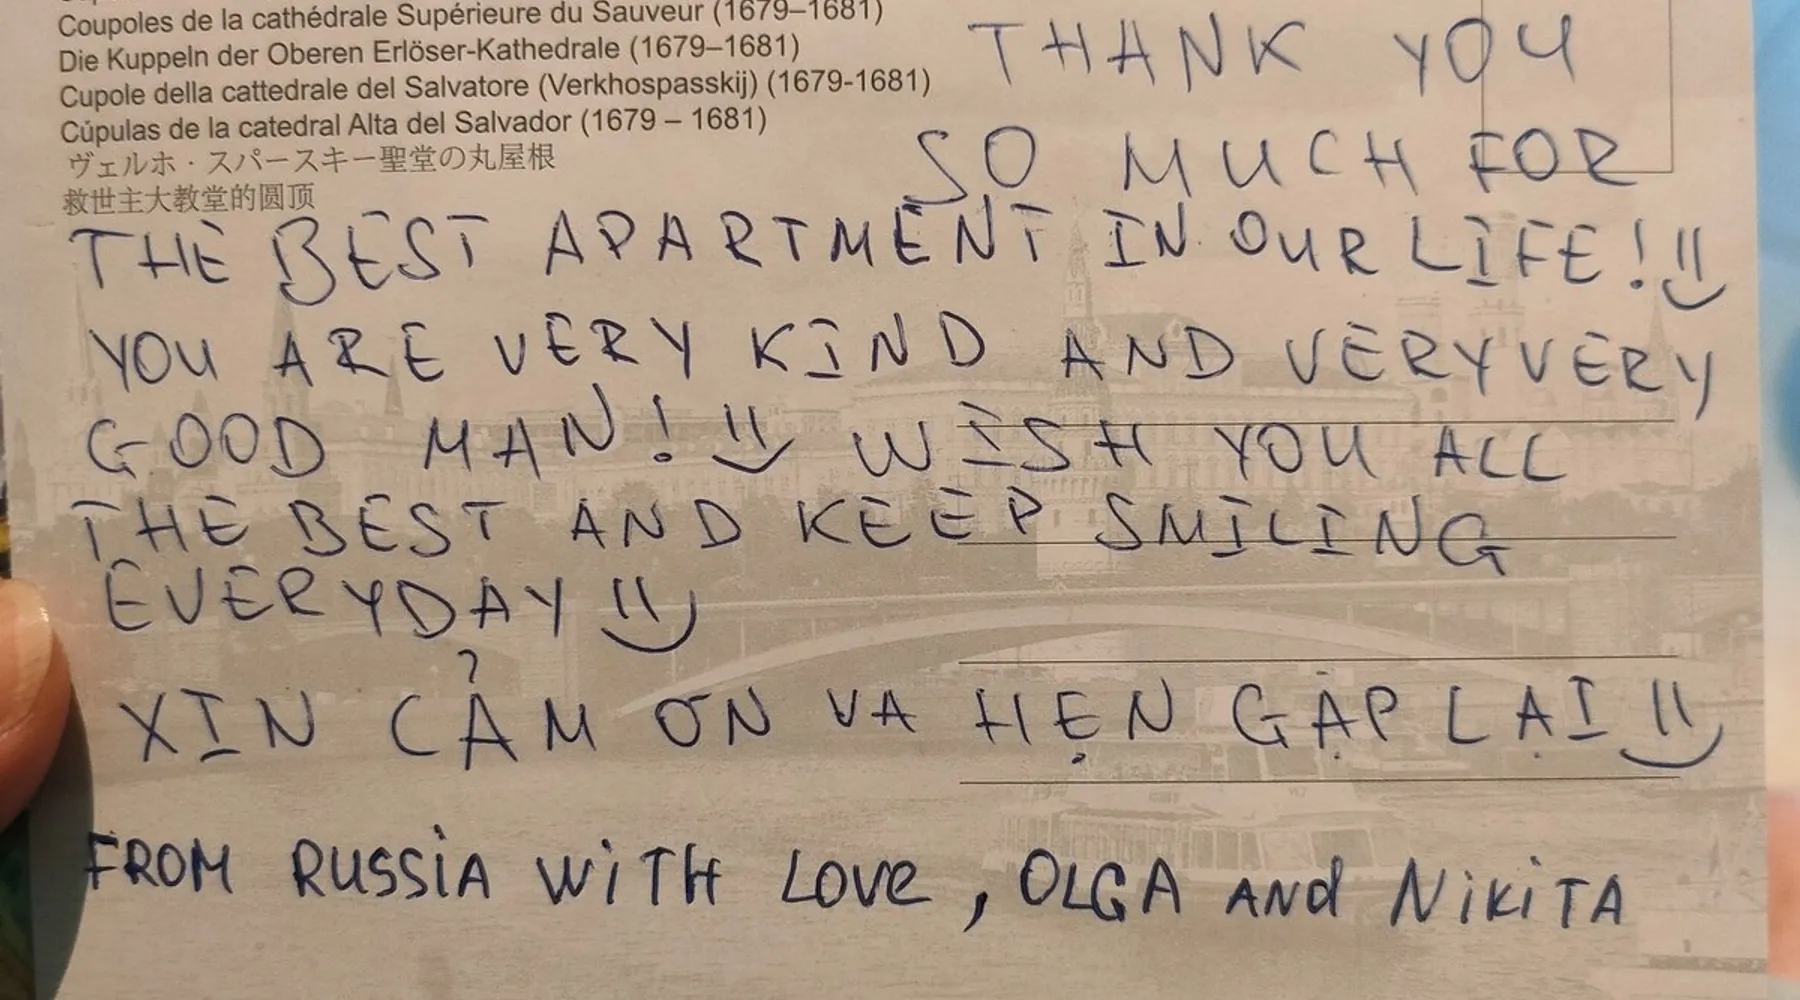 Coupoles de la cathédrale Supérieure du Sauveur (1679–1681)
Die Kuppeln der Oberen Erlöser-Kathedrale (1679–1681)
Cupole della cattedrale del Salvatore (Verkhospasskij) (1679-1681)
Cúpulas de la catedral Alta del Salvador (1679 – 1681)
ヴェルホ・スパースキー聖堂の丸屋根
救世主大教堂的圆顶
THANK YOU
SO MUCH FOR
THE BEST APARTMENT IN OUR LIFE!
YOU ARE VERY KIND AND VERY VERY
GOOD MAN! WISH YOU ALL
THE BEST AND KEEP SMILING
EVERYDAY
XIN CẢM ƠN VA HẸN GẶP LẠI
FROM RUSSIA WITH LOVE, OLGA AND NIKITA